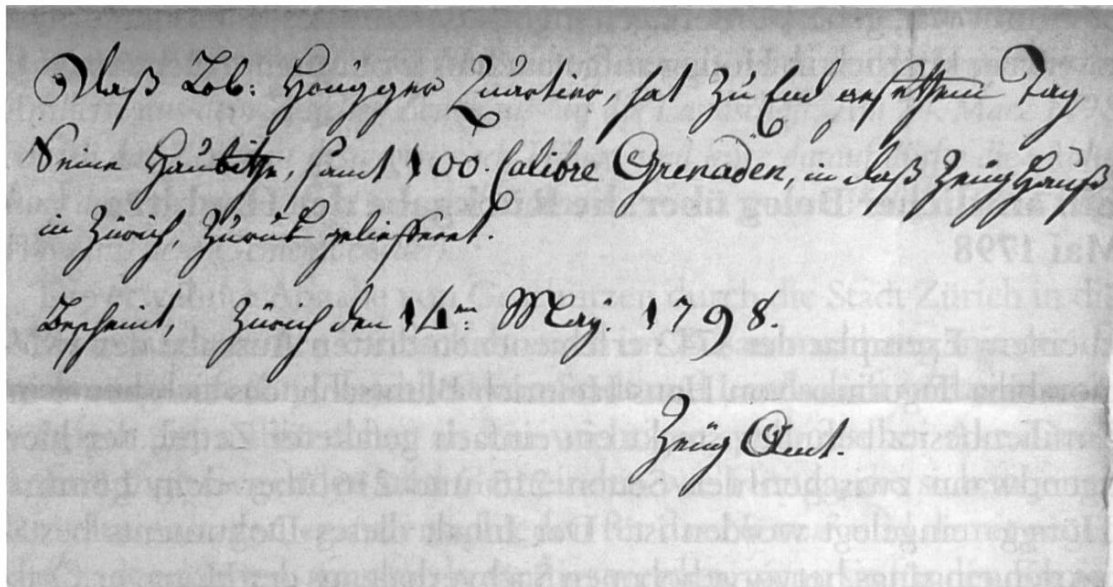 Daß Lob: Höngger Quartier, hat zu End gesetztem Tag
Seine Haubitze, samt 100. Calibre Grenaden, in daß Zeüg Hauß
in Zürich, Zuruk geliefferet.
Bescheint, Zürich den 14ten: Maÿ. 1798.
Zeüg Amt.